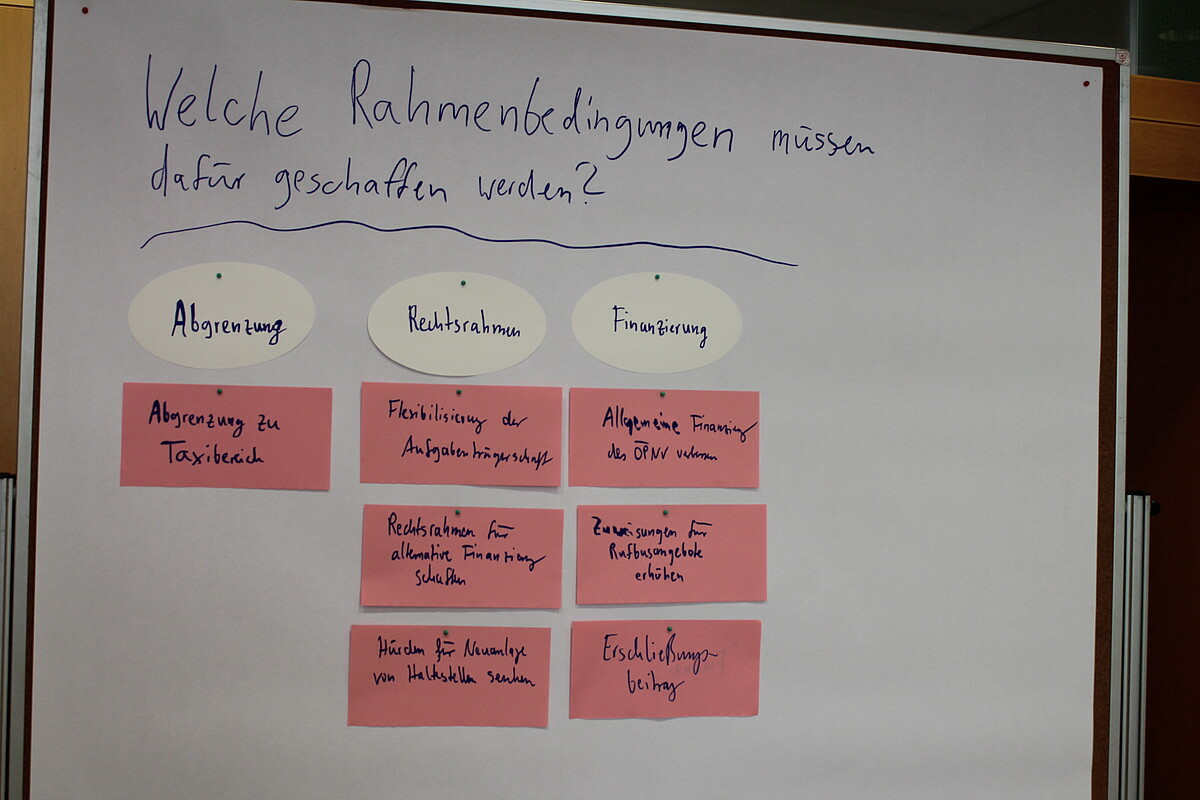 Welche Rahmenbedingungen müssen
dafür geschaffen werden?
Abgrenzung
Abgrenzung zu
Taxibereich
Rechtsrahmen
Flexibilisierung der
Aufgabenträgerschaft
Rechtsrahmen für
alternative Finanzierung
schaffen
Hürden für Neuanlage
von Haltestellen senken
Finanzierung
Allgemeine Finanzierung
des ÖPNV verbessern
Zuweisungen für
Rufbusangebote
erhöhen
Erschließungs-
beitrag